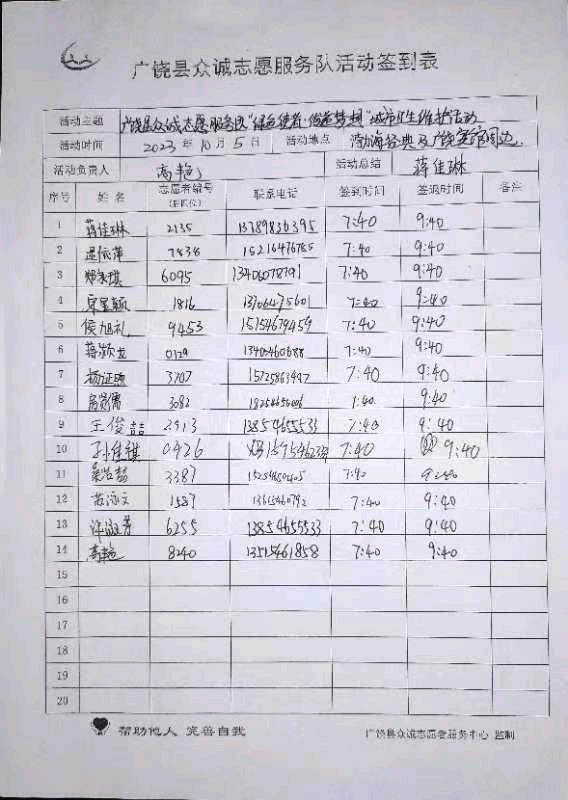 广饶县众诚志愿服务队活动签到表
活动主题 广饶县众诚志愿服务队"绿色使者·俗放梦想"城市卫生维护活动
活动时间 2023年10月5日 活动地点 渤海经典及广饶宾馆周边
活动负责人 高艳 活动总结 蒋佳琳
序号 姓名 志愿者编号(后四位) 联系电话 签到时间 签退时间 备注
1 蒋佳琳 2135 13789836395 7:40 9:40
2 7838 15216476785 7:40 9:40
3 6095 13406078791 7:40 9:40
4 1816 13706475601 7:40 9:40
5 侯旭礼 9453 15154679459 7:40 9:40
6 蒋颖龙 0129 13405460688 7:40 9:40
7 杨证 3707 15725863497 7:40 9:40
8 3082 18254656006 7:40 9:40
9 王俊喆 2913 13854655533 7:40 9:40
10 孙佳祺 0926 7:40 9:40
11 3387 7:40 9:40
12 苏泳文 1587 13615460792 7:40 9:40
13 许淑芳 6255 13854655533 7:40 9:40
14 高艳 8240 13515461858 7:40 9:40
15
16
17
18
19
20
帮助他人 完善自我 广饶县众诚志愿者服务中心 监制